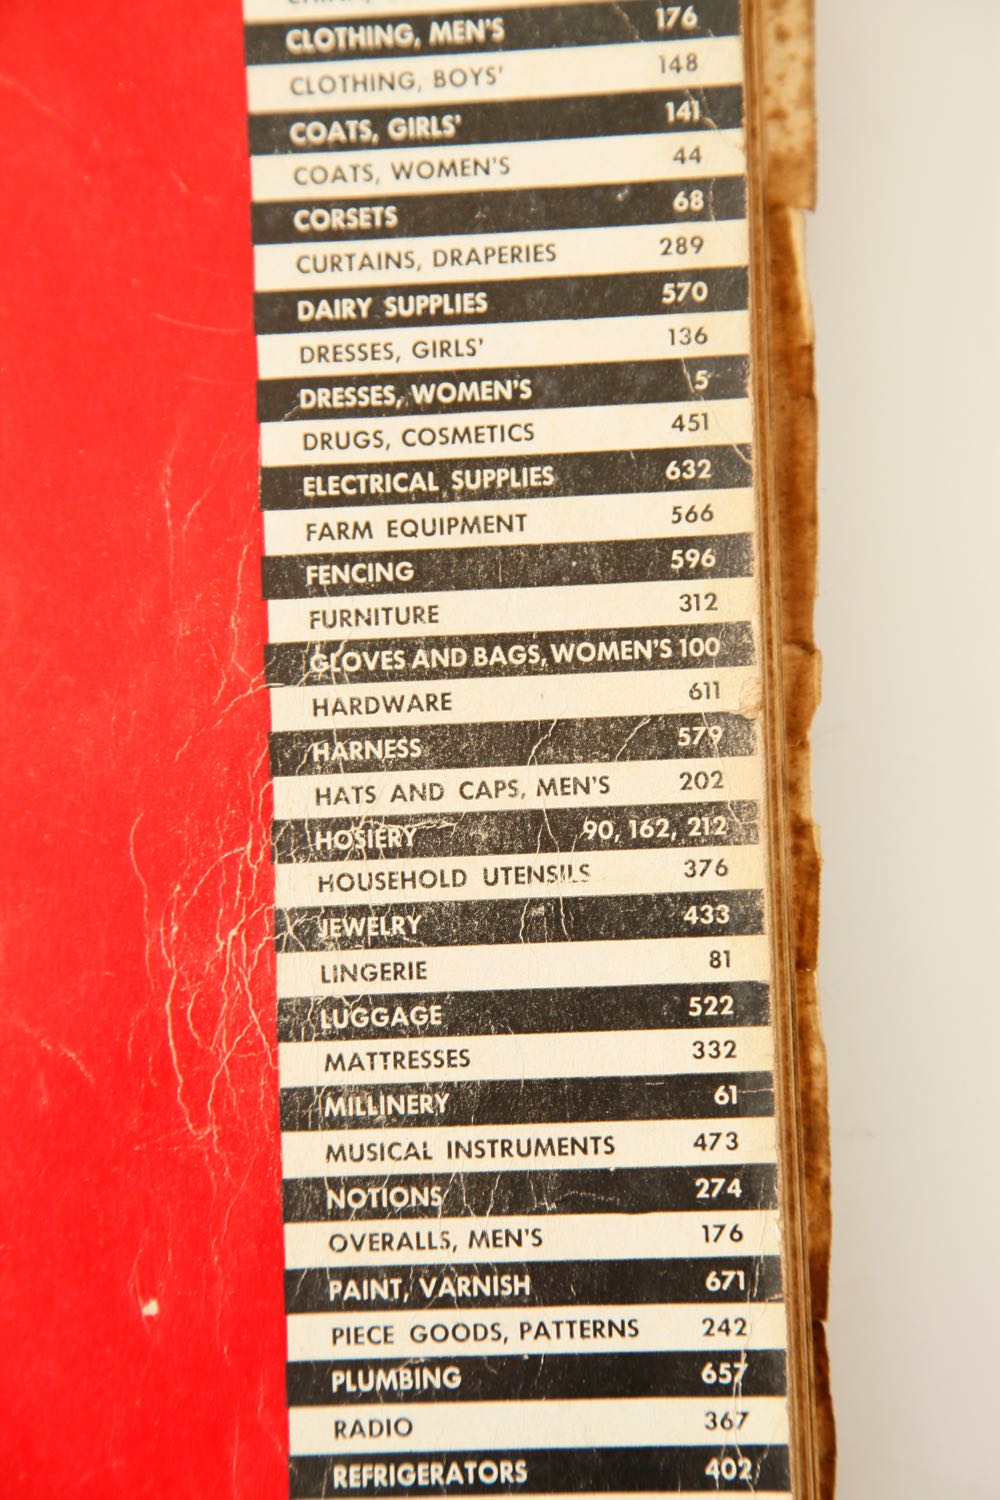 CLOTHING, MEN'S 176
CLOTHING, BOYS' 148
COATS, GIRLS' 141
COATS, WOMEN'S 44
CORSETS 68
CURTAINS, DRAPERIES 289
DAIRY SUPPLIES 570
DRESSES, GIRLS' 136
DRESSES, WOMEN'S 5
DRUGS, COSMETICS 451
ELECTRICAL SUPPLIES 632
FARM EQUIPMENT 566
FENCING 596
FURNITURE 312
GLOVES AND BAGS, WOMEN'S 100
HARDWARE 611
HARNESS 579
HATS AND CAPS, MEN'S 202
HOSIERY 90, 162, 212
HOUSEHOLD UTENSILS 376
JEWELRY 433
LINGERIE 81
LUGGAGE 522
MATTRESSES 332
MILLINERY 61
MUSICAL INSTRUMENTS 473
NOTIONS 274
OVERALLS, MEN'S 176
PAINT, VARNISH 671
PIECE GOODS, PATTERNS 242
PLUMBING 657
RADIO 367
REFRIGERATORS 402